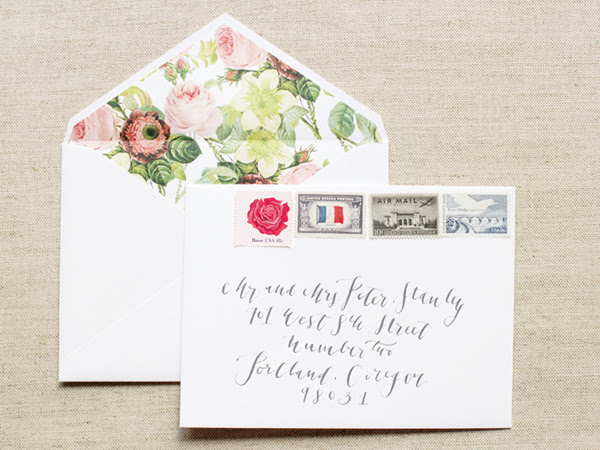 Rose USA 18c
UNITED STATES POSTAGE
AIR MAIL
10¢
Mr and Mrs Peter Stanley
101 West 8th Street
Number two
Portland, Oregon
98031